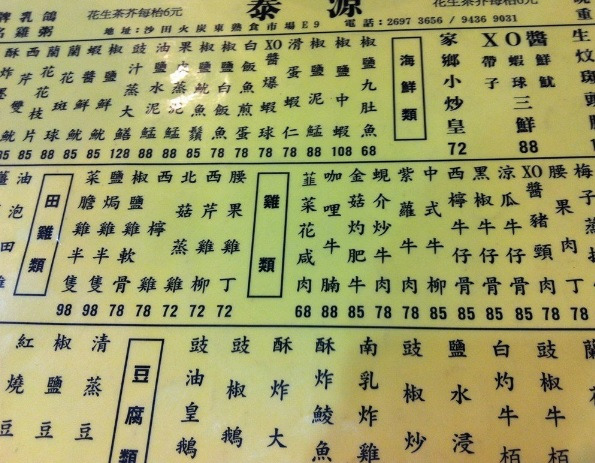 牌乳鴿 花生茶芥每枱6元 泰源 花生茶芥每枱6元
名雞粥 地址:沙田火炭東熟食市場E9 電話:2697 3656 / 9436 9031
生炆斑頭
XO醬 帶子 蝦球 鮮魷 三鮮 88
家鄉小炒皇 72
海鮮類
椒鹽九肚魚 68
椒鹽中蝦 108
椒鹽泥鯭 88
滑蛋蝦仁 78
XO醬爆蝦球 78
白飯魚煎蛋 78
椒鹽白飯魚 78
椒鹽魷鬚 78
果蒸泥鯭 85
油鹽水泥鯭 88
豉汁蒸大鱔 128
椒鹽鮮魷 85
蝦醬鮮魷 85
蘭花斑球 88
西芹花枝片 85
酥炸雙魷 85
梅子蒸
腰果肉丁 78
XO醬豬頸肉 85
涼瓜牛仔骨 78
黑椒牛仔骨 85
西檸牛仔骨 85
中式牛柳 85
紫蘿牛肉 78
蜆介炒牛肉 78
金菇灼肥牛 85
咖哩牛腩 88
韮菜花咸肉 68
雞類
腰果雞丁 72
西芹雞柳 72
北菇蒸雞 72
西檸雞 78
椒鹽雞軟骨 78
鹽焗雞半隻 98
菜膽雞半隻 98
田雞類
油泡田雞
蘭花
豉椒牛栢
白灼牛栢
鹽水浸
豉椒炒
南乳炸雞
酥炸鯪魚
酥炸大
豉椒鵝
豉油皇鵝
豆腐類
清蒸豆
椒鹽豆
紅燒豆